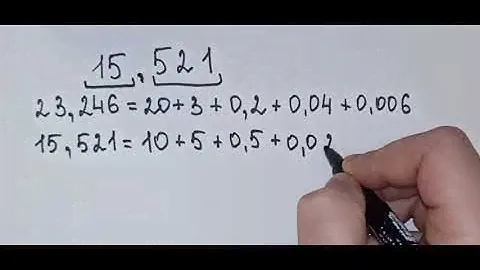 15,521
23,246=20+3+0,2+0,04+0,006
15,521=10+5+0,5+0,02